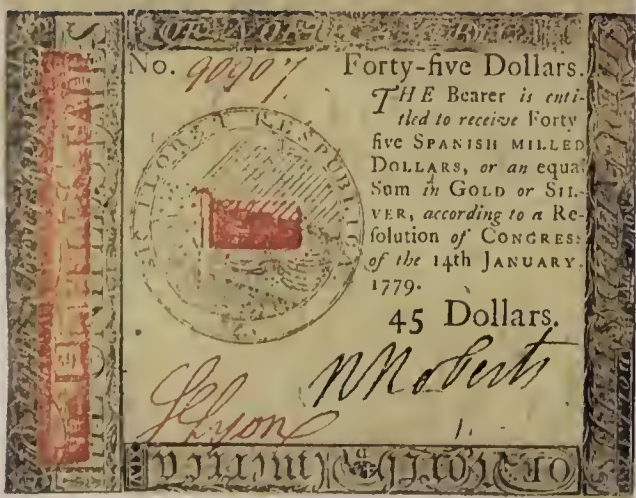 No. 90907 Forty-five Dollars.
THE Bearer is enti-
tled to receive Forty
five SPANISH MILLED
DOLLARS, or an equal
Sum in GOLD or SIL-
VER, according to a Re-
solution of CONGRESS
of the 14th JANUARY
1779.
45 Dollars.
SIC FLORET RESPUBLICA
N Roberts
S Lyon
OF NORTH AMERICA